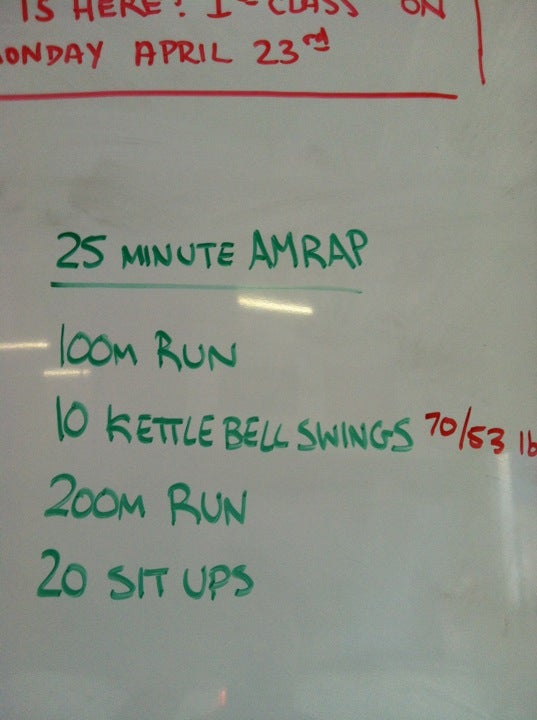 IS HERE! 1ST CLASS ON
MONDAY APRIL 23rd
25 MINUTE AMRAP
100M RUN
10 KETTLEBELL SWINGS 70/53 lb
200M RUN
20 SIT UPS